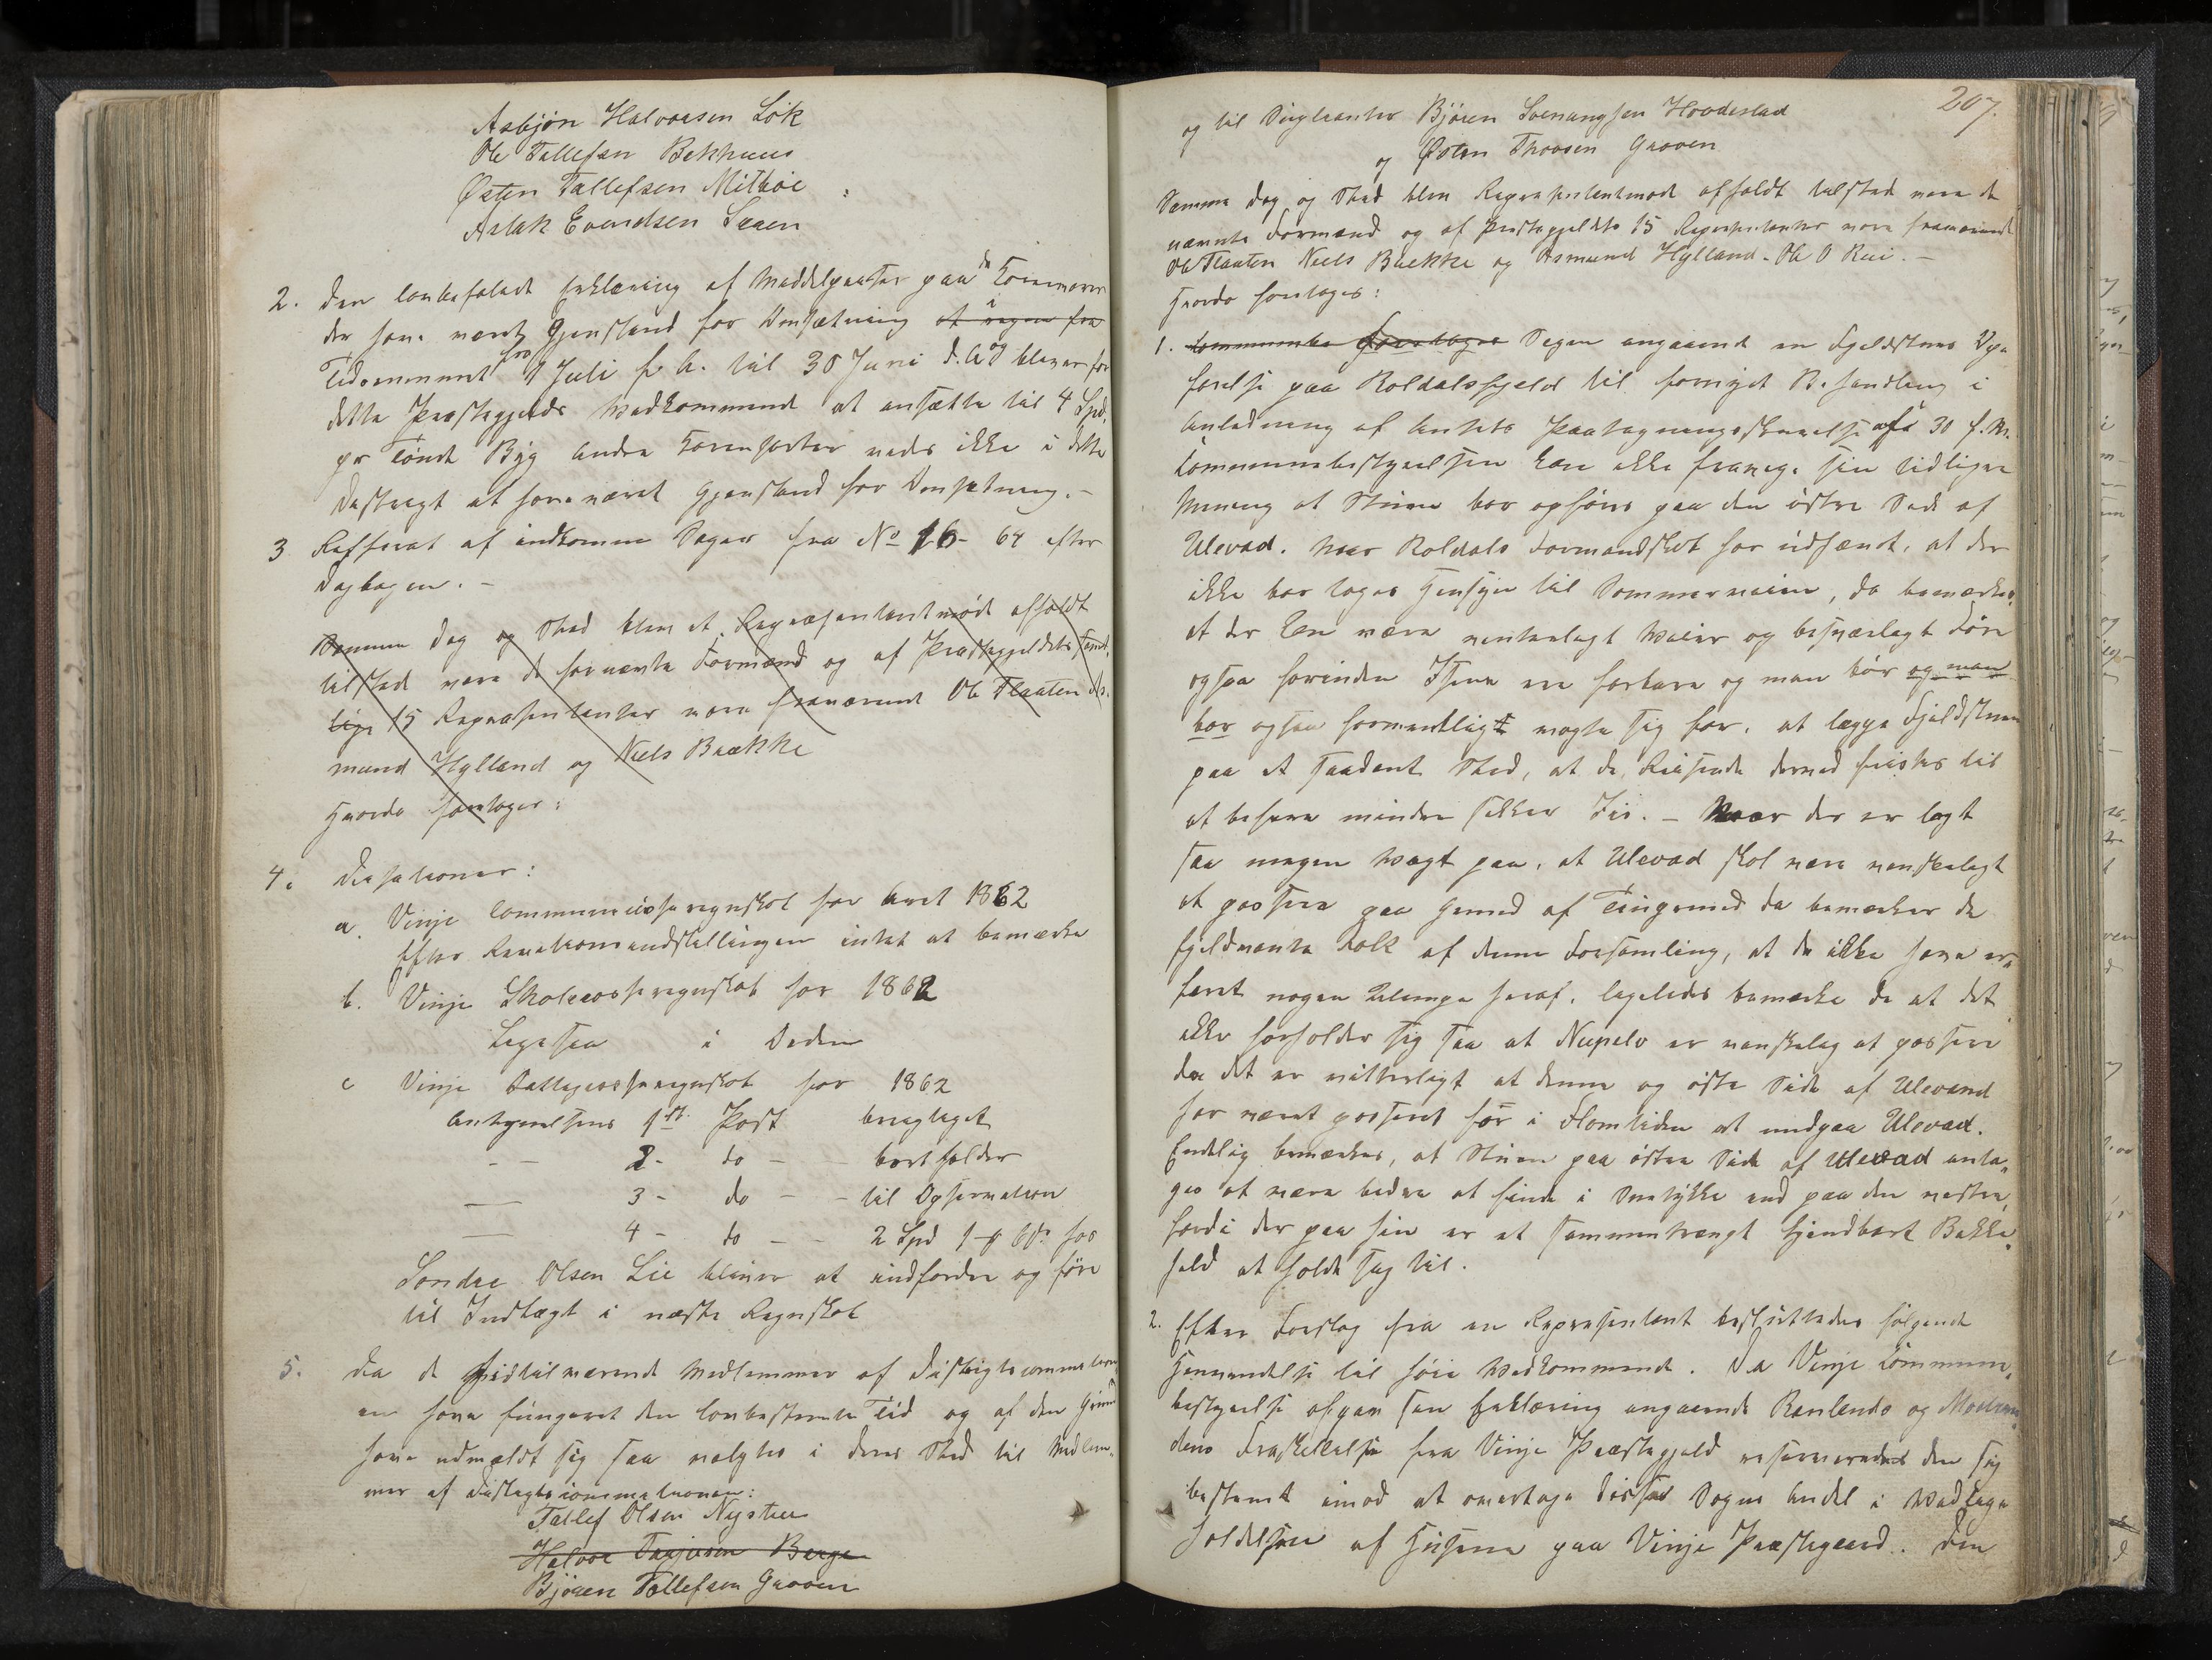 Asbjørn Halvorsen Lök
Ole Tallefsen Bekhuus
Østen Tallefsen Mitbøe
Aslak Evendsen
2. Den lovbefalede Erklæring af Middelpriser paa de Kornvarer
der have været Gjenstand for Omsætning at regne fra
Tidsrummet fra 1 Juli f. A. til 30 Juni d. A. og bliver for
dette Præstegjelds Vedkommende at ansætte til 4 Spd.
pr Tönde Byg Andre Kornsorter vides ikke i dette
Distrigt at have været Gjenstand for Omsetning. -
3 Refferat af indkomne Sager fra No 16 - 64 efter
Dagbogen. -
Samme Dag og Sted blev et Repræsentantmöde afholdt
tilstede vare de fornævnte Formænd og af Præstegjeldets samt-
lige 15 Repræsentanter vare fraværende Ole Flaaten As-
mund Hylland og Niels Brække
Hvorda foretoges:
4. Desitioner:
a. Vinje Communecasseregnskab for Aaret 1862
Efter Revitionsindstillingen intet at bemærke
b. Vinje Skolecasseregnskab for 1862
Ligesaa i Decision
c Vinje Fattigcasseregnskab for 1862
Antegnelsens 1ste Post bragtaget
- - 2 - do - - bortfalder
— 3 - do - - til Opservation
— 4 - do - - 2 Spd 1 # 6 s. hos
Sondre Olsen Lie bliver at indfordre og före
til Indtægt i næste Regnskab
5. Da de hidtilværende Medlemmer af Distrigtscommission
en have fungeret den lovbestemte Tid og af den Grund
have udmeldt sig saa valgtes i deres Sted til Medlem-
mer af Distrigtscommissionen:
Tallef Olsen Nystue
Halvor Tarjesen Berge
Björen Tallefsen Groven
207.
og til Suplianter Björen Svenungsen Hovdestad
og Østen Thorsen Groven
Samme Dag og Sted blev Repræsentantmöde afholdt tilstede vare de
nævnte Formænd og af Præstegjeldets 15 Repræsentanter vare fraværende
Ole Flaaten Niels Brække og Asmund Hylland. Ole O Rui. -
Hvorda foretoges:
1. Communebe foretoges Sagen angaaende en Fjeldstues Op-
förelse paa Roldalsfjeld til fornyet Behandling i
Anledning af Amtets Paategningsskrivelse af 30 f. M.
Communebestyrelsen kan ikke fravige sin tidligere
Mening at Stuen bør opføres paa den östre Side af
Ulevad. Naar Roldals Formandskab har udhævet, at der
ikke bør tages Hensyn til Sommerveien, da bemærkes,
at der kan være vinterlagt Veier og besværligt Före
ogsaa forinden Isene ere farbare og man bör og man
bør ogsaa formentligt vogte sig for, at lægge Fjeldstuen
paa et saadant Sted, at de Reisende derved fristes til
at befare mindre sikker Iis. - Naar der er lagt
saa megen Vægt paa, at Ulevad skal være vanskeligt
at passere paa Grund af da bemærker de
fjeldvante Folk af denne Forsamling, at de ikke have er-
faret nogen Ulempe heraf, ligeledes bemærke de at det
ikke forholder sig saa at Nupelv er vanskelig at passere
da det er vitterligt at denne og østre Side af Ulevand
har været passeret för i Flomtiden at undgaa Ulevad.
Endelig bemærkes, at Stuen paa östre Side af Ulevad anta-
ges at være bedre at finde i Snetykke end paa den vestre,
fordi der paa hin er et sammentrængt kjendbart Bakke-
held at holde sig til.
2. Efter Forslag fra en Repræsentant besluttedes fölgende
Henvendelse til höie Vedkommende. Da Vinje Commune-
bestyrelse afgav sin Erklæring angaaende Raulands og Moelan-
dens Fraskillelse fra Vinje Præstegjeld reserverede den sig
bestemt imod at overtage disse Sogne Andel i Vedlige-
holdelsen af Husene paa Vinje Præstegaard. Den